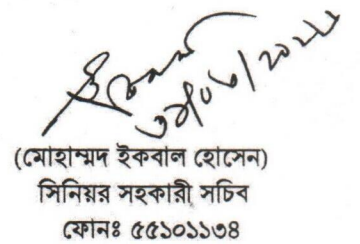 (মোহাম্মদ ইকবাল হোসেন)
সিনিয়র সহকারী সচিব
ফোনঃ ৫৫১০১১৩৪